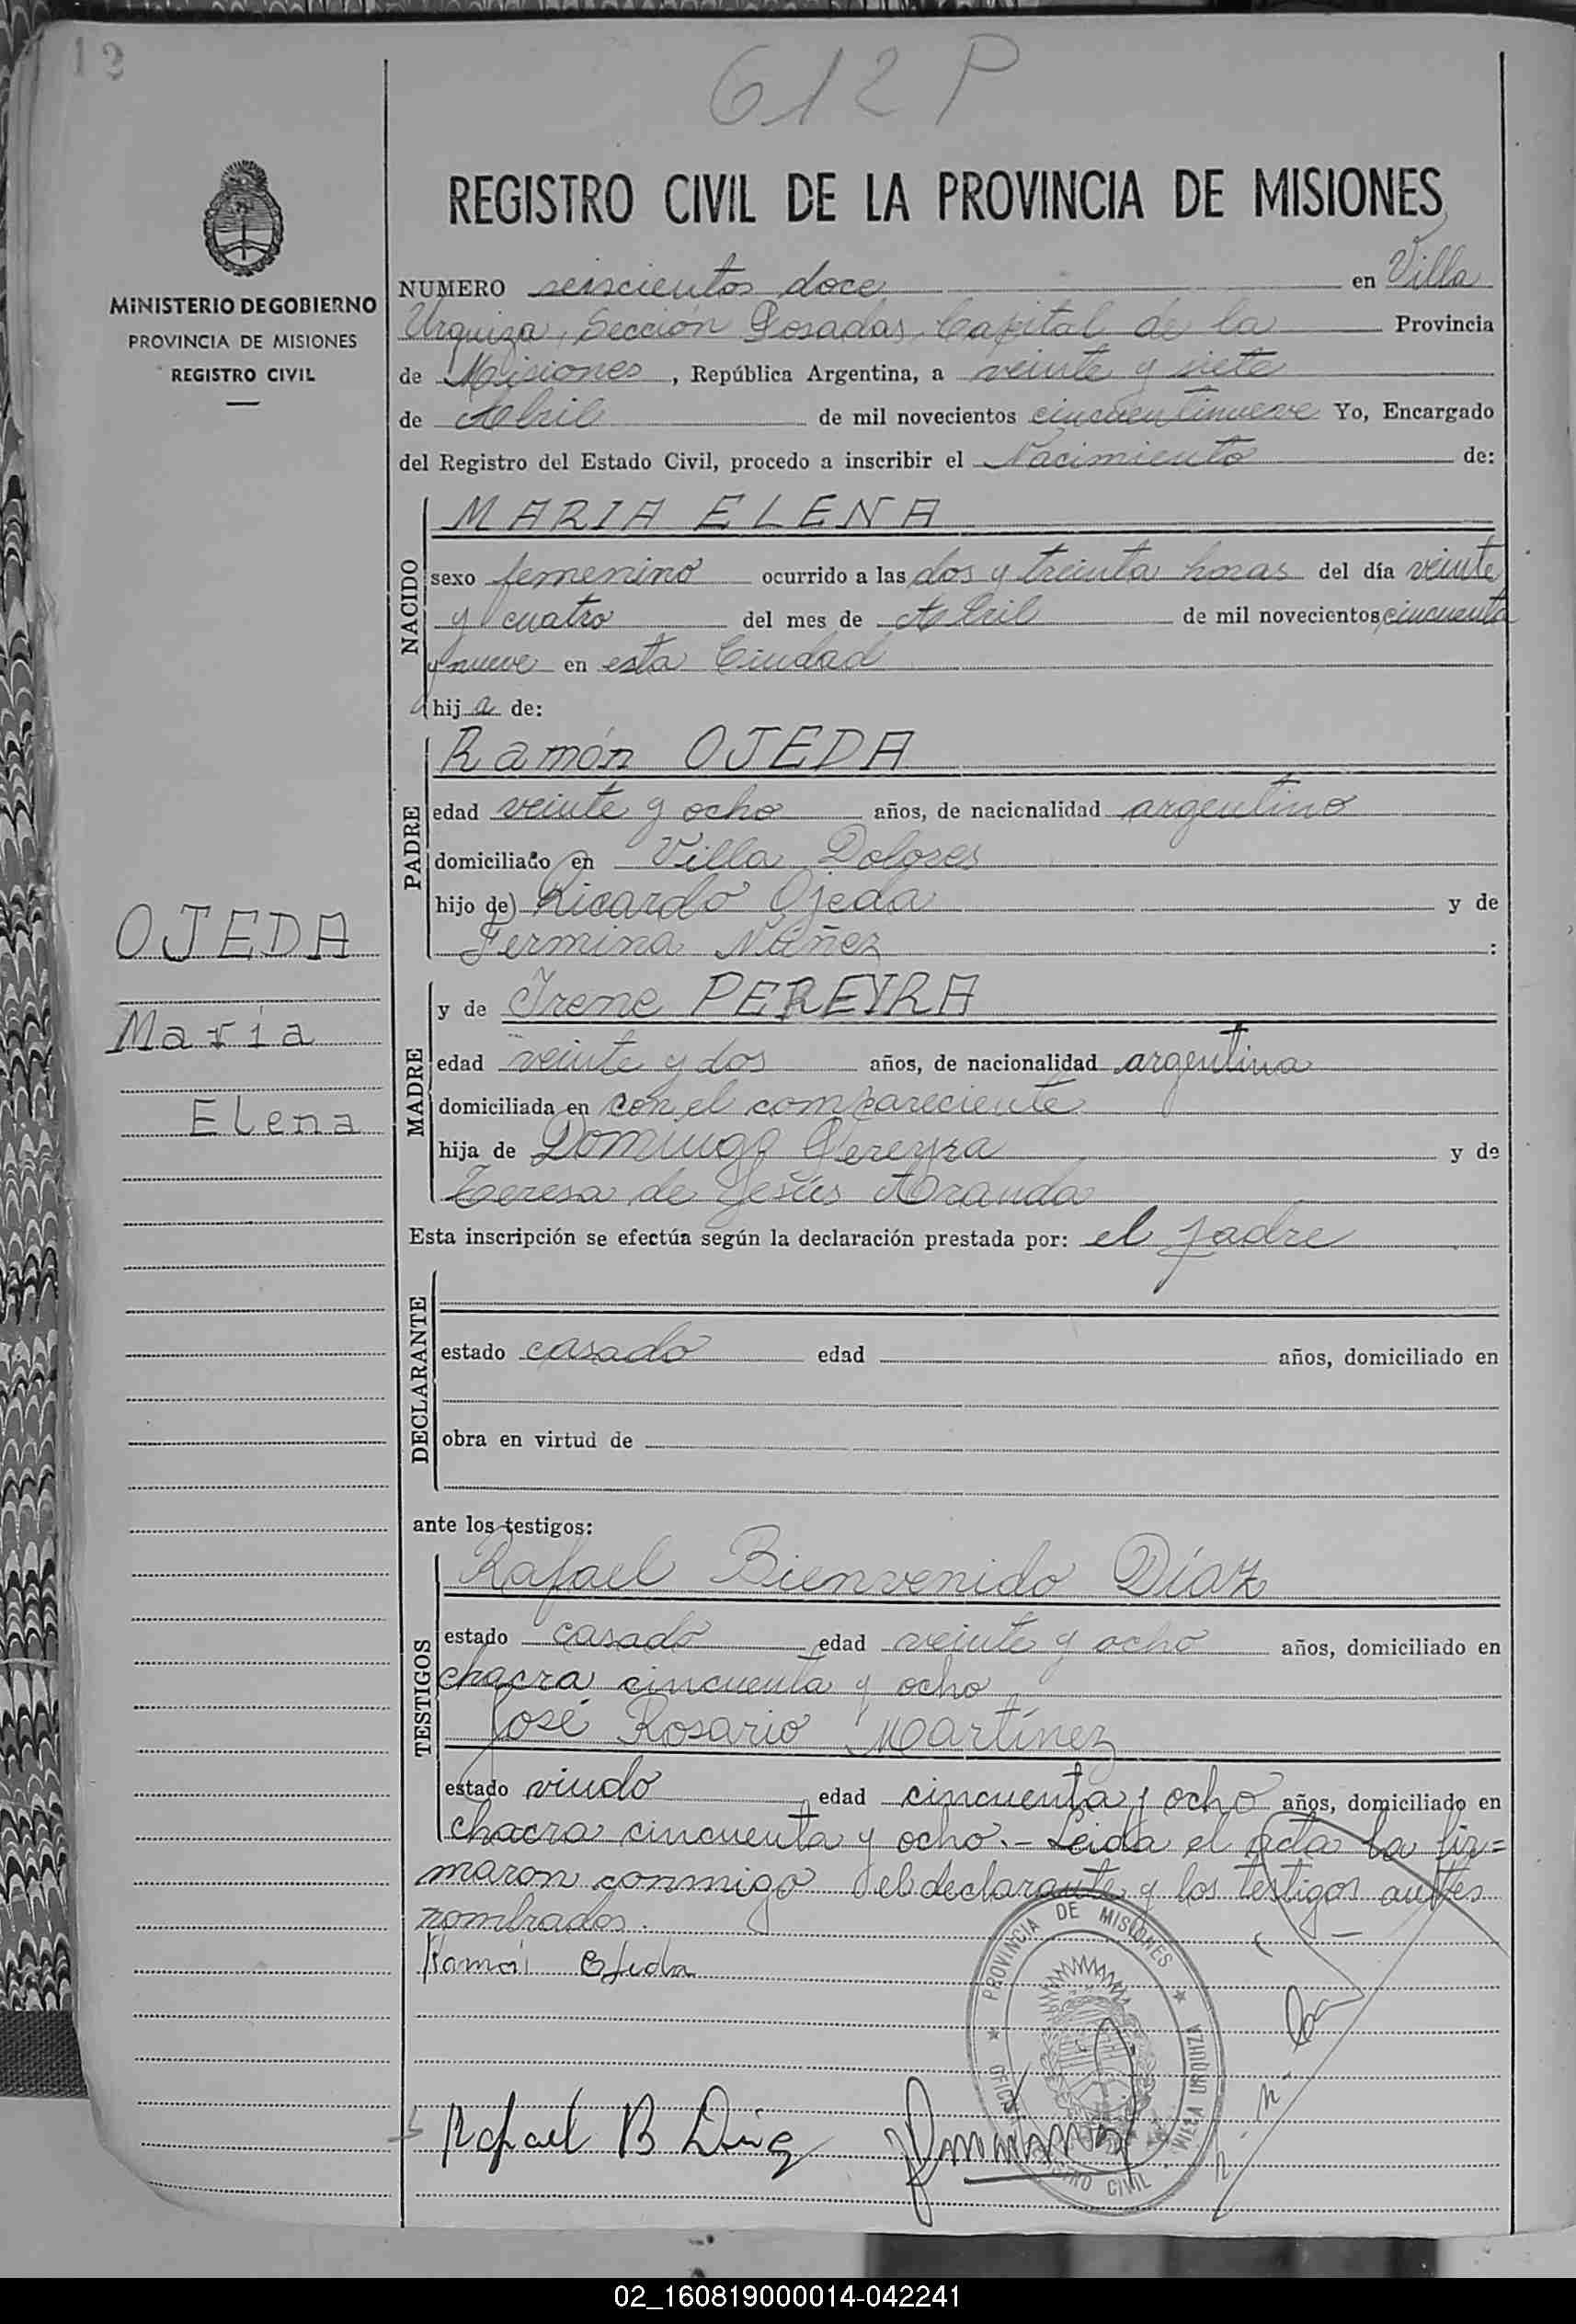 12
612 P
REGISTRO CIVIL DE LA PROVINCIA DE MISIONES
MINISTERIO DE GOBIERNO
PROVINCIA DE MISIONES
REGISTRO CIVIL
NUMERO seiscientos doce en Villa
Urquiza, Sección Posadas, Capital de la Provincia
de Misiones, República Argentina, a veinte y siete
de Abril de mil novecientos cincuentinueve Yo, Encargado
del Registro del Estado Civil, procedo a inscribir el Nacimiento de:
NACIDO
MARIA ELENA
sexo femenino ocurrido a las dos y treinta horas del día veinte
y cuatro del mes de Abril de mil novecientos cincuenta
y nueve en esta Ciudad
hij a de:
PADRE
Ramón OJEDA
edad veinte y ocho años, de nacionalidad argentino
domiciliado en Villa Dolores
hijo de) Ricardo Ojeda y de
Fermina Núñez :
OJEDA
María
Elena
MADRE
y de Irene PEREYRA
edad veinte y dos años, de nacionalidad argentina
domiciliada en con el compareciente
hija de Domingo Pereyra y de
Teresa de Jesús Aranda
Esta inscripción se efectúa según la declaración prestada por: el padre
DECLARANTE
estado casado edad años, domiciliado en
obra en virtud de
ante los testigos:
TESTIGOS
Rafael Bienvenido Díaz
estado casado edad veinte y ocho años, domiciliado en
chacra cincuenta y ocho
José Rosario Martínez
estado viudo edad cincuenta y ocho años, domiciliado en
chacra cincuenta y ocho.- Leida el acta la fir=
maron conmigo el declarante y los testigos antes
nombrados.
Ramón Ojeda
PROVINCIA DE MISIONES
VILLA URQUIZA
CIVIL
Rafael B Diaz
02_160819000014-042241